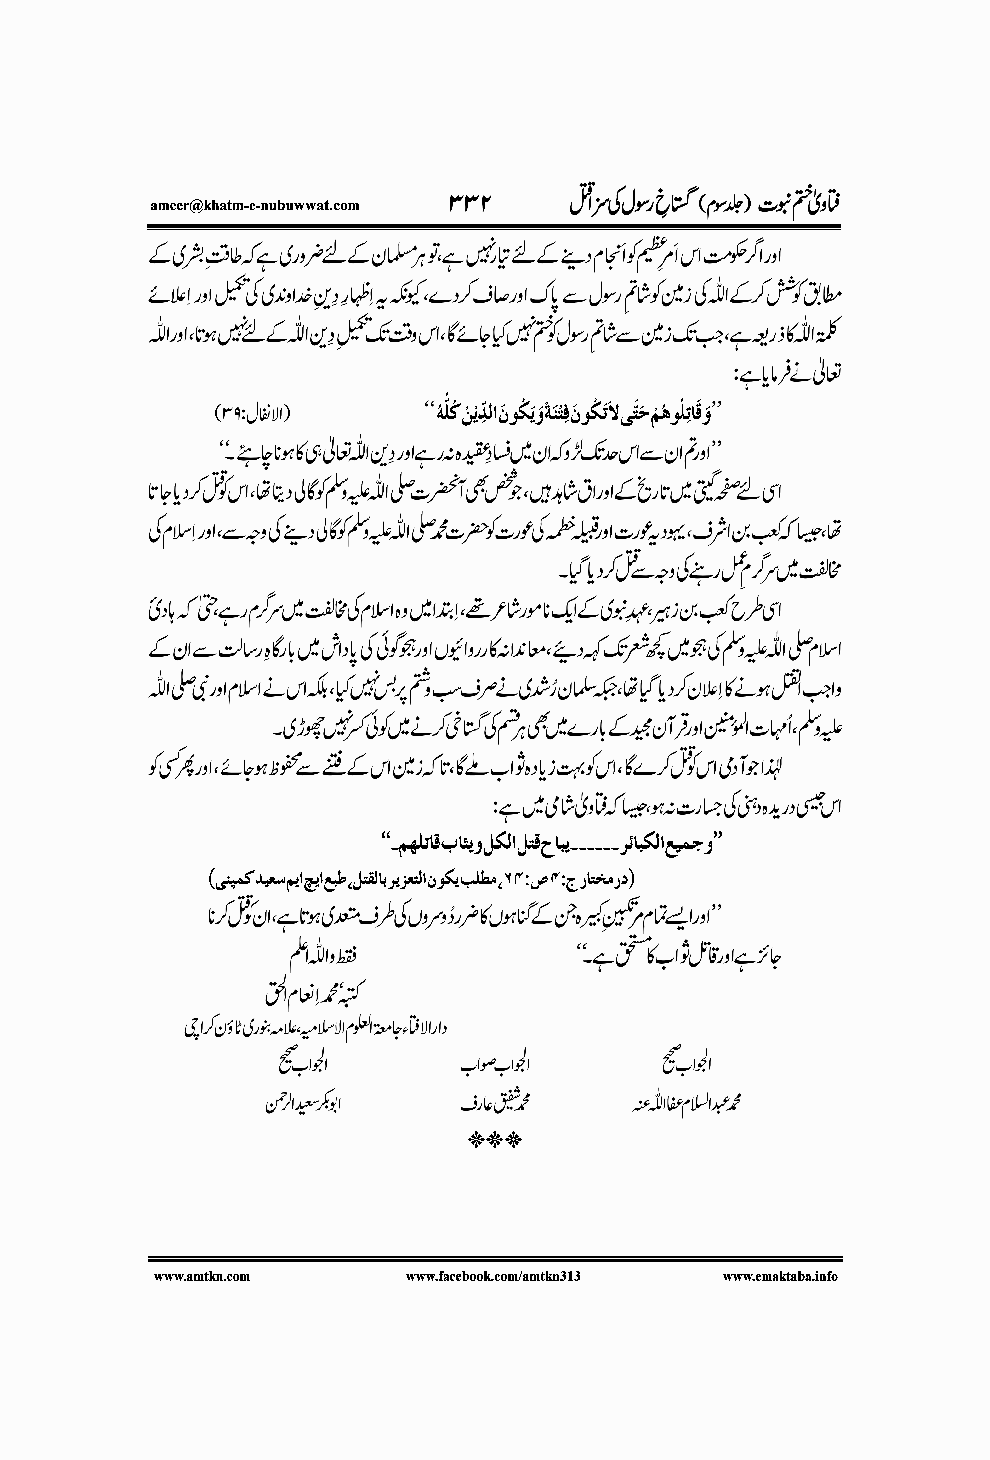 فتاویٰ ختم نبوت (جلد سوم) گستاخِ رسول کی سزا قتل ۳۳۲ ameer@khatm-e-nubuwwat.com
اور اگر حکومت اس امرِ عظیم کو انجام دینے کے لئے تیار نہیں ہے، تو ہر مسلمان کے لئے ضروری ہے کہ طاقتِ بشری کے
مطابق کوشش کرکے اللہ کی زمین کو شاتمِ رسول سے پاک اور صاف کردے، کیونکہ یہ اِظہارِ دِینِ خداوندی کی تکمیل اور اِعلائے
کلمۃ اللہ کا ذریعہ ہے، جب تک زمین سے شاتمِ رسول کو ختم نہیں کیا جائے گا، اس وقت تک تکمیلِ دِین اللہ کے لئے نہیں ہوتا، اور اللہ
تعالیٰ نے فرمایا ہے:
’’وَقَاتِلُوهُمْ حَتّٰى لَا تَكُونَ فِتْنَةٌ وَيَكُونَ الدِّيْنُ كُلُّهُ‘‘ (الانفال:۳۹)
’’اور تم ان سے اس حد تک لڑو کہ ان میں فسادِ عقیدہ نہ رہے اور دِین اللہ تعالیٰ ہی کا ہونا چاہئے۔‘‘
اسی لئے صفحۂ گیتی میں تاریخ کے اوراق شاہد ہیں، جو شخص بھی آنحضرت صلی اللہ علیہ وسلم کو گالی دیتا تھا، اس کو قتل کردیا جاتا
تھا، جیسا کہ کعب بن اشرف، یہودیہ عورت اور قبیلہ خطمہ کی عورت کو حضرت محمد صلی اللہ علیہ وسلم کو گالی دینے کی وجہ سے، اور اِسلام کی
مخالفت میں سرگرمِ عمل رہنے کی وجہ سے قتل کردیا گیا۔
اسی طرح کعب بن زہیر، عہدِ نبوی کے ایک نامور شاعر تھے، اِبتدا میں وہ اسلام کی مخالفت میں سرگرم رہے، حتیٰ کہ ہادئ
اسلام صلی اللہ علیہ وسلم کی ہجو میں کچھ شعر تک کہہ دیئے، معاندانہ کارروائیوں اور ہجوگوئی کی پاداش میں بارگاہِ رسالت سے ان کے
واجب القتل ہونے کا اِعلان کردیا گیا تھا، جبکہ سلمان رُشدی نے صرف سب وشتم پر بس نہیں کیا، بلکہ اس نے اسلام اور نبی صلی اللہ
علیہ وسلم، اُمہات المؤمنین اور قرآن مجید کے بارے میں بھی ہر قسم کی گستاخی کرنے میں کوئی کسر نہیں چھوڑی۔
لہٰذا جو آدمی اس کو قتل کرے گا، اس کو بہت زیادہ ثواب ملے گا، تاکہ زمین اس کے فتنے سے محفوظ ہوجائے، اور پھر کسی کو
اس جیسی دریدہ دہنی کی جسارت نہ ہو، جیسا کہ فتاویٰ شامی میں ہے:
’’وجميع الكبائر ۔۔۔۔۔۔ يباح قتل الكل ويثاب قاتلهم۔‘‘
(درمختار ج:۴ ص:۶۴، مطلب يكون التعزير بالقتل، طبع ایچ ایم سعید کمپنی)
’’اور ایسے تمام مرتکبینِ کبیرہ جن کے گناہوں کا ضرر دُوسروں کی طرف متعدی ہوتا ہے، ان کو قتل کرنا
جائز ہے اور قاتل ثواب کا مستحق ہے۔‘‘ فقط واللہ اعلم
کتبہٗ محمد اِنعام الحق
دارالافتاء جامعۃ العلوم الاسلامیہ، علامہ بنوری ٹاؤن کراچی
الجواب صحیح الجواب صواب الجواب صحیح
محمد عبدالسلام عفا اللہ عنہ محمد شفیق عارف ابوبکر سعید الرحمن
www.amtkn.com www.facebook.com/amtkn313 www.emaktaba.info